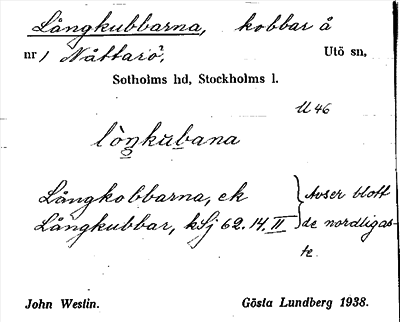 Långkubbarna, kobbar å
nr 1 Nåttarö, Utö sn,
Sotholms hd, Stockholms l.
U 46
lòŋkubana
Långkobbarna, ek } Avser blott
Långkubbar, kSj 62. 14. II de nordligas-
te.
John Westin. Gösta Lundberg 1938.